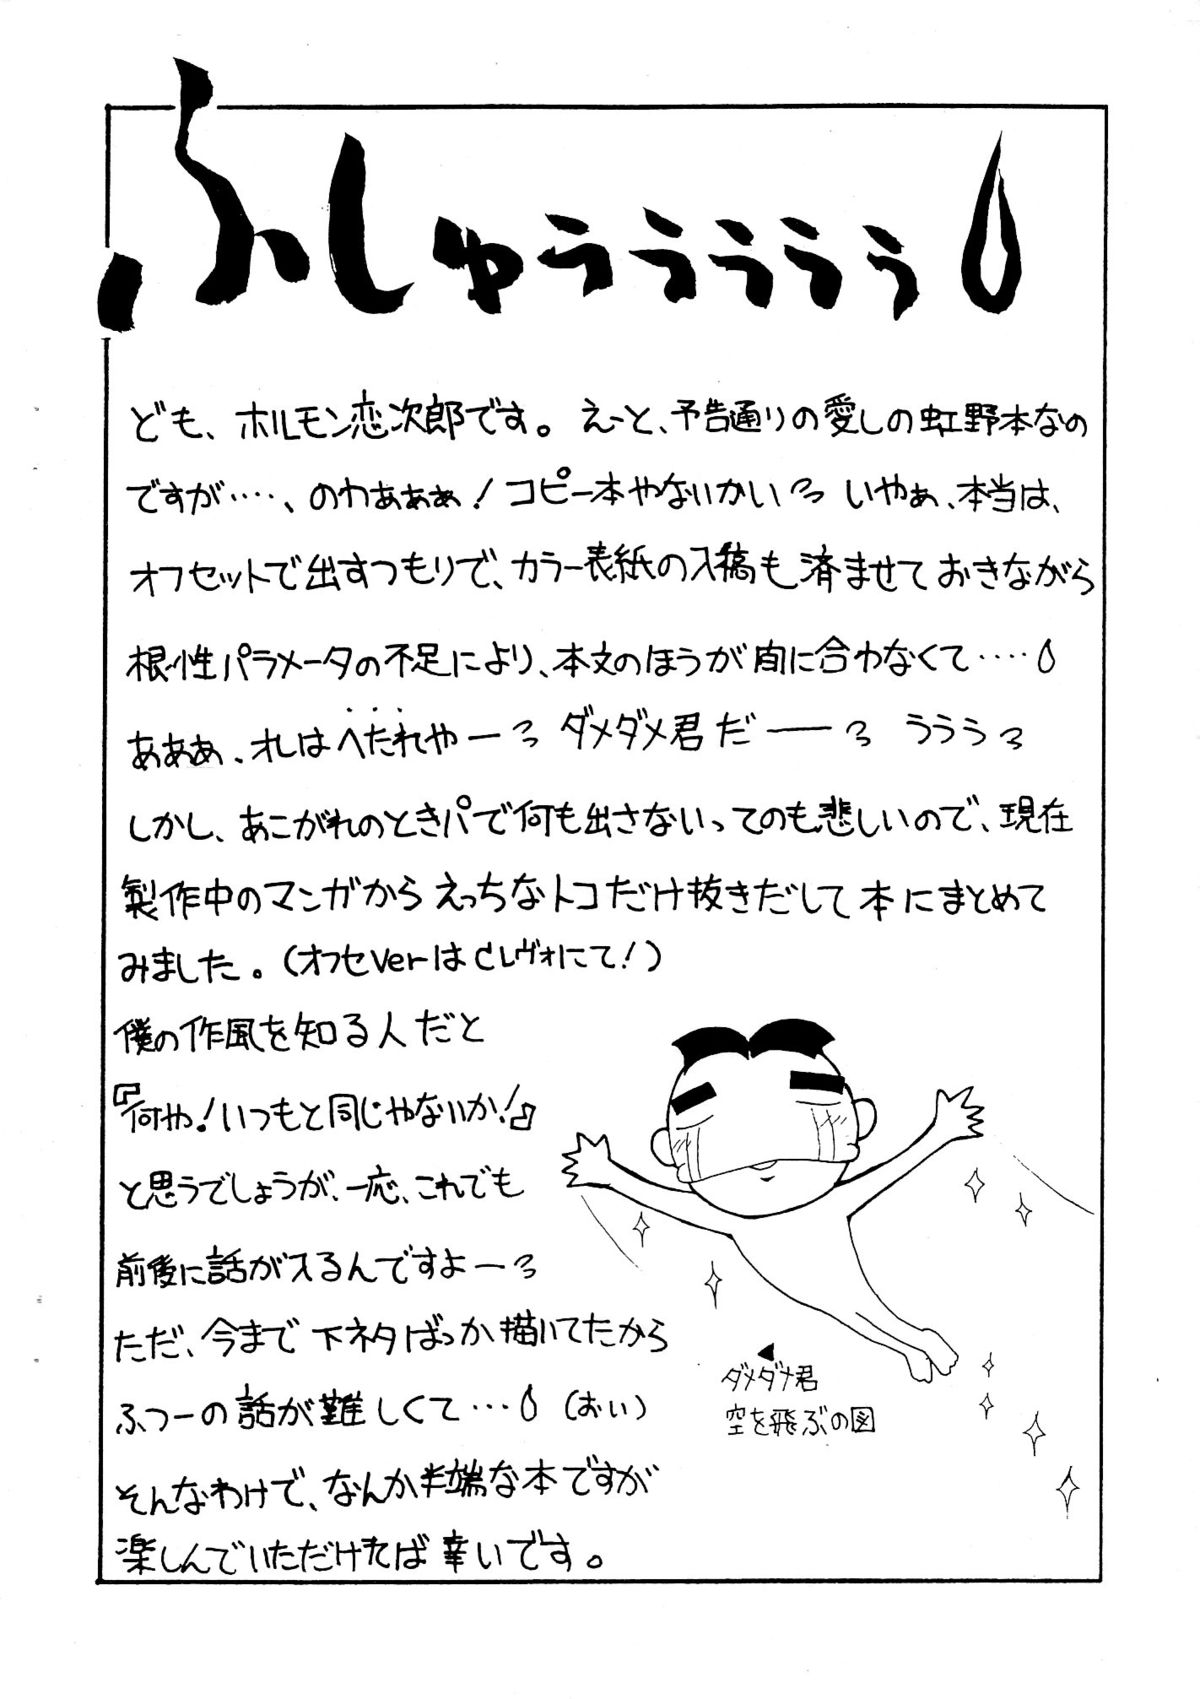 ふしゅぅぅぅぅぅ
ども、ホルモン恋次郎です。えーと、予告通りの愛しの虹野本なの
ですが‥‥、のわぁぁぁ！コピー本やないかいっ いやぁ、本当は、
オフセットで出すつもりで、カラー表紙の入稿も済ませておきながら
根性パラメータの不足により、本文のほうが間に合わなくて‥‥
あああ、オレはへたれやーっ ダメダメ君だ――っ うううっ
しかし、あこがれのときパで何も出さないってのも悲しいので、現在
製作中のマンガからえっちなトコだけ抜きだして本にまとめて
みました。（オフセverはCレヴォにて！）
僕の作風を知る人だと
『何や！いつもと同じやないか！』
と思うでしょうが、一応、これでも
前後に話が入るんですよーっ
ただ、今まで下ネタばっか描いてたから
ふつーの話が難しくて…（おい）
そんなわけで、なんか半端な本ですが
楽しんでいただければ幸いです。
◀
ダメダメ君
空を飛ぶの図